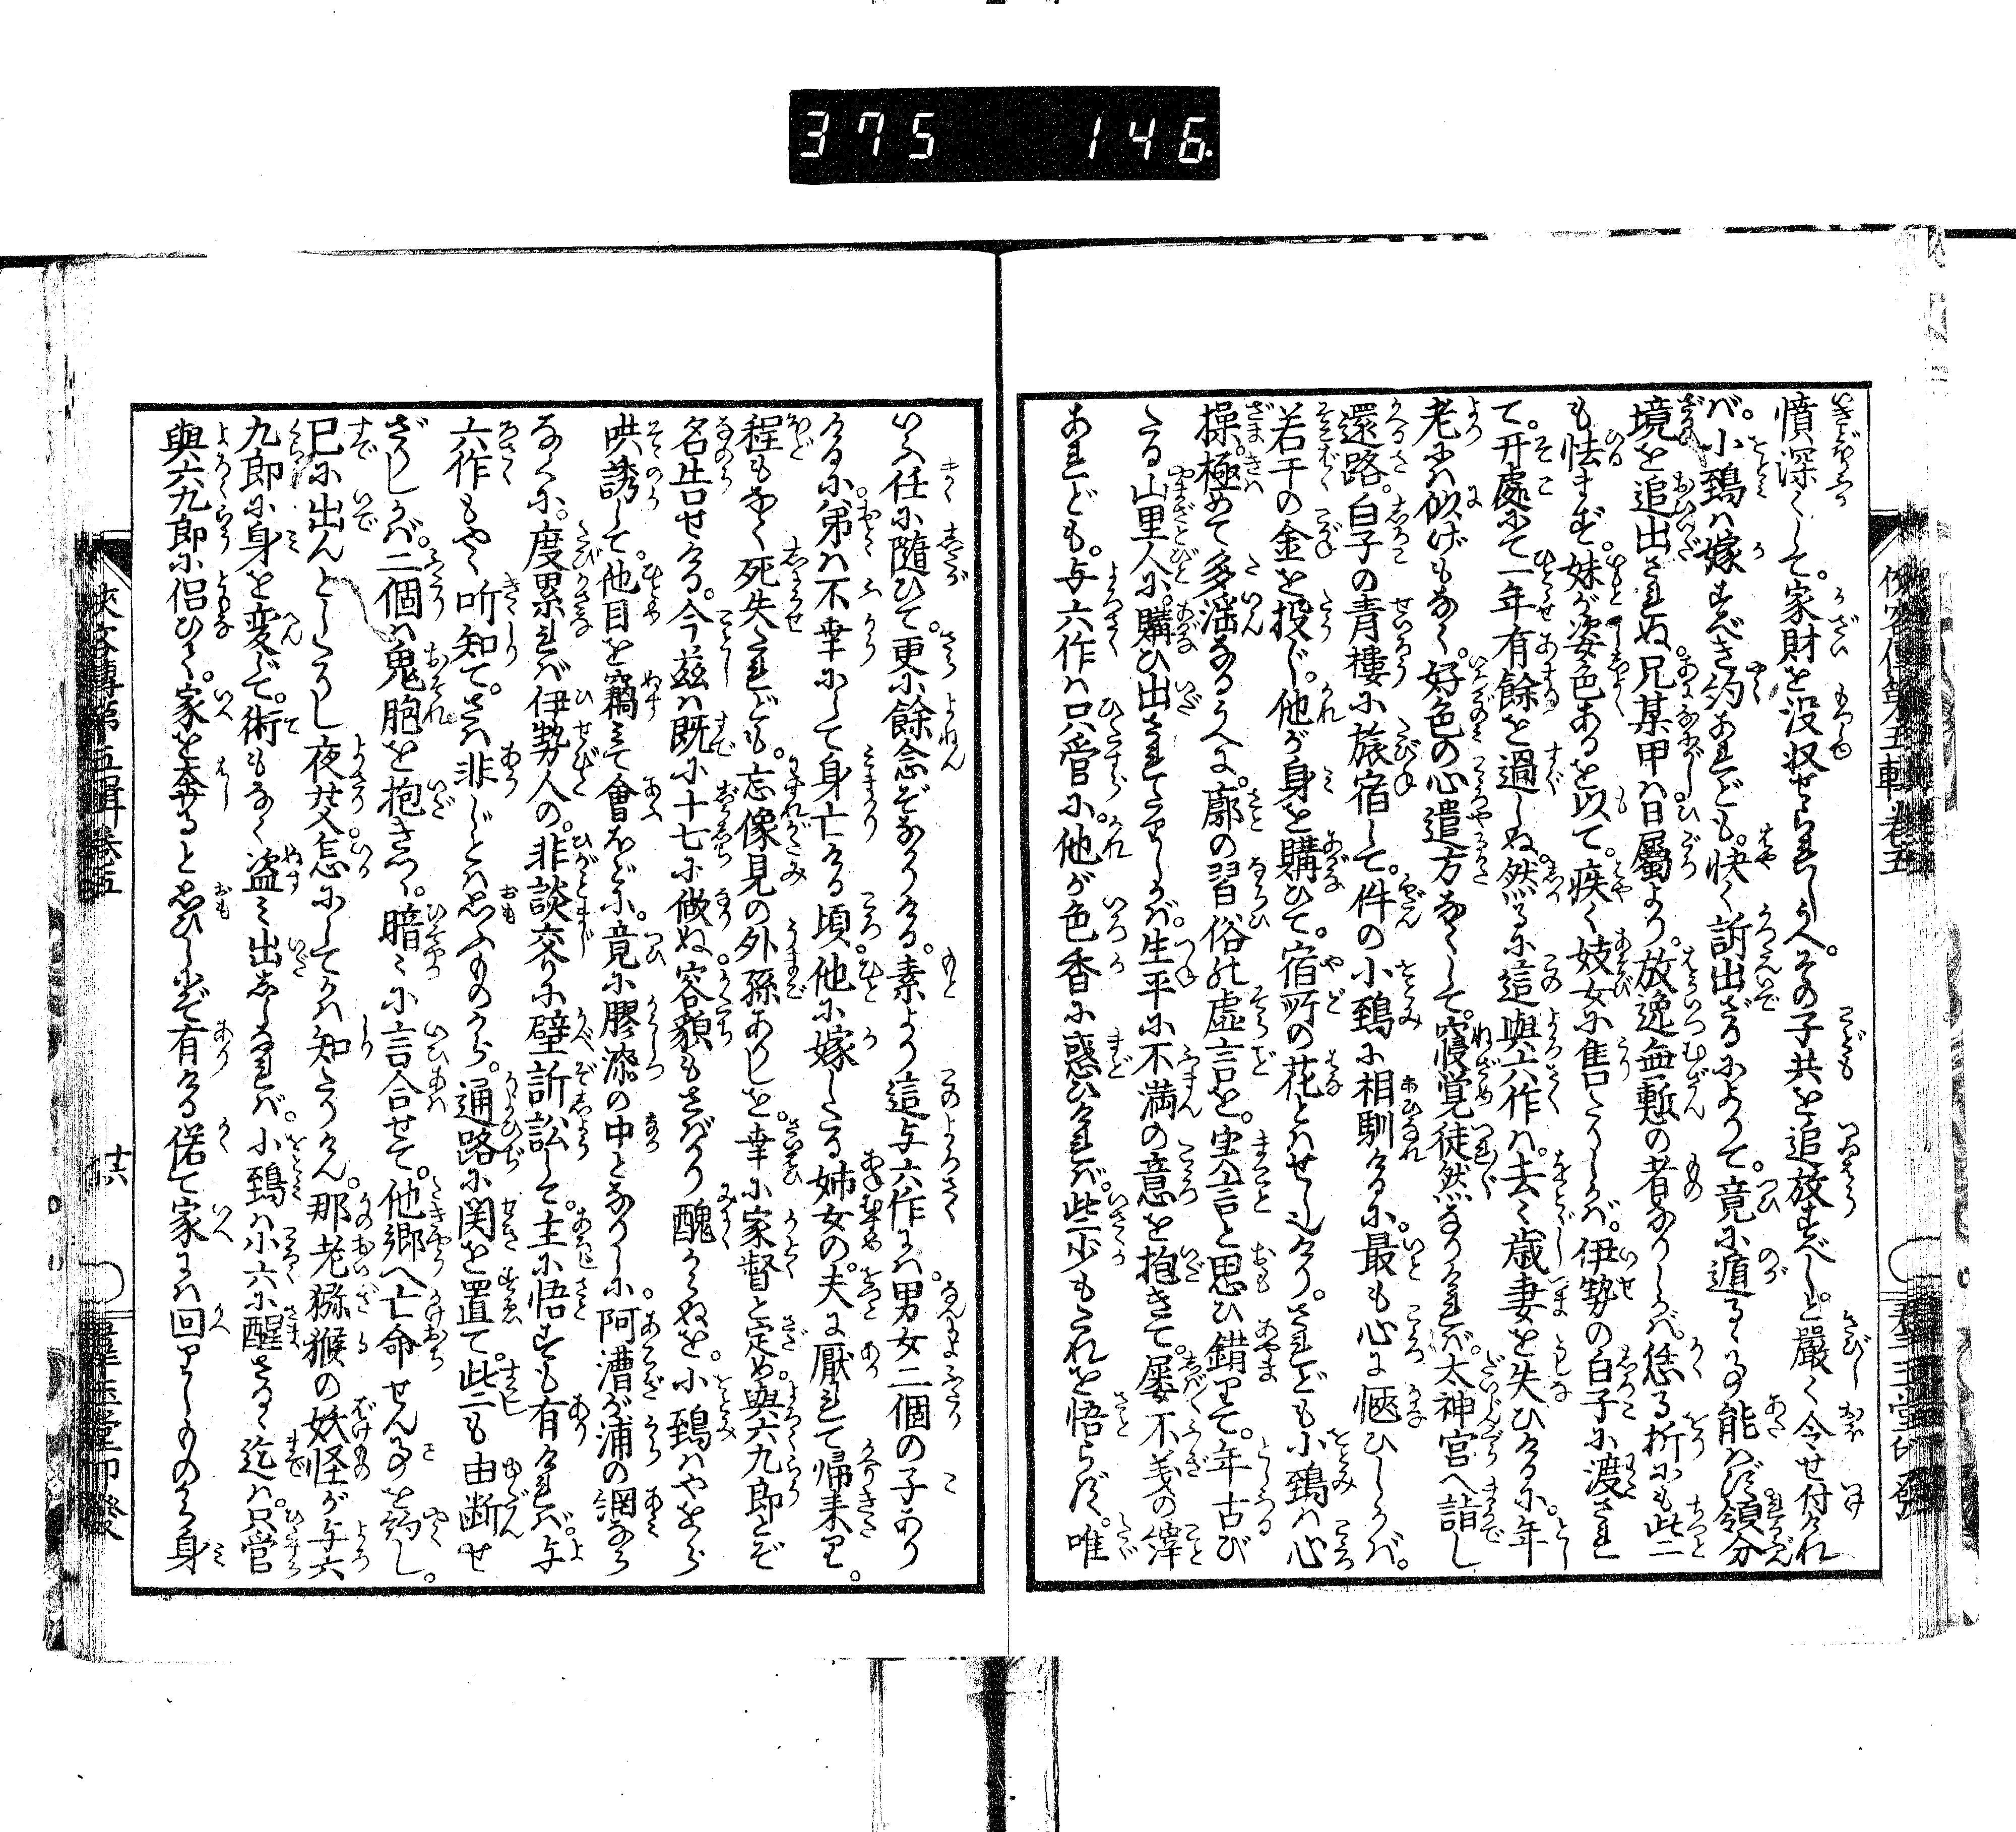 375 146
憤深くして。家財を没収せられしうへ。その子共を追放すべしと嚴く令せ付けれ
ば。小鵐は嫁すべき約あれども。快く訢出ざるによりて。竟に遁るゝ事能はず。領分
境を追出されぬ。兄某甲は日属より。放逸無慙の者なりしかば。恁る折にも些
も怯まず。妹が姿色あるを以て。疾く妓女に售たりしかば。伊勢の白子に渡され
て。开處にて一年有餘を過しぬ。然るに這與六作は。去く歳妻を失ひけるに。年
老には似げもなく。好色の心遣方なくして。寝覚徒然なりければ。太神宮へ詣し
還路。白子の青樓に旅宿して。件の小鵐に相馴けるに。最も心に愜ひしかば。
若干の金を投じ。他が身を購ひて。宿所の花とはせしなり。されども小鵐は心
操。極めて多淫なるうへに。廓の習俗の虚言を。実言と思ひ錯りて。年古び
たる山里人に。購ひ出されてありしかば。生平に不満の意を抱きて。屡不義の
あれども。与六作は只管に。他が色香に惑ひければ。些少もこれを悟らず。唯
いふ任に隨ひて。更に餘念ぞなかりける。素より這与六作には。男女二個の子あり
けるに。弟は不幸にして身亡ける頃。他に嫁したる姉女の。夫に厭れて帰来り。
程もなく死失たれども。忘像見の外孫ありしを。幸に家督と定め與六九郎とぞ
名告せける。今茲は既に十七に做ぬ。容貌もさばかり醜からぬを。小鵐はやをら
哄誘して。他目を竊みて會ふほどに。竟に膠漆の中となりしに。阿漕が浦の網なら
なくに。度累れば伊勢人の。非談交りに壁訢訟して。主に悟すも有ければ。与
六作もやゝ听知て。さは非じとは思ふものから。通路に関を置て。些も由断せ
ざりしかば。二個は鬼胎を抱きつゝ。暗々に言合せて。他郷へ亡命せん事を約し。
已に出んとしたりし夜艾。怎にしてかは知たりけん。那老獼猴の妖怪が与六
九郎に身を変じて。術もなく盗み出しゝなれば。小鵐は小六に醒さるゝ迄は。只管
與六九郎に侶ひて。家を奔ると思ひしにぞ有ける。偖て家には回りしものから身
俠客傳第五輯卷五
十六
群玉堂印發